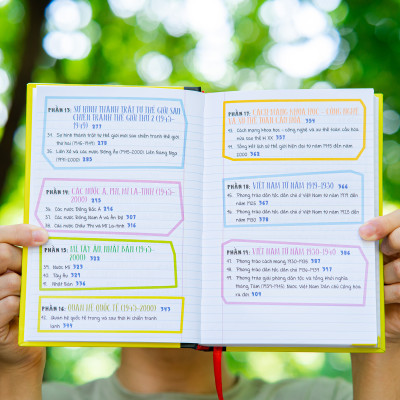 PHẦN 13: SỰ HÌNH THÀNH TRẬT TỰ THẾ GIỚI SAU
CHIẾN TRANH THẾ GIỚI THỨ 2 (1945-
1949) 277
34. Sự hình thành trật tự thế giới mới sau chiến tranh thế giới
thứ hai (1945-1949) 278
35. Liên Xô và các nước Đông Âu (1945-2000). Liên bang Nga
(1991-2000) 285
PHẦN 14: CÁC NƯỚC Á, PHI, MĨ LA-TINH (1945-
2000) 295
36. Các nước Đông Bắc Á 296
37. Các nước Đông Nam Á và Ấn Độ 307
38. Các nước Châu Phi và Mĩ La-tinh 316
PHẦN 15: MĨ, TÂY ÂU, NHẬT BẢN (1945-
2000) 322
39. Nước Mĩ 323
40. Tây Âu
41. Nhật Bản 336
PHẦN 16: QUAN HỆ QUỐC TẾ (1945-2000) 343
42. Quan hệ quốc tế trong và sau thời kì chiến tranh
lạnh 344
PHẦN 17: CÁCH MẠNG KHOA HỌC - CÔNG NGHỆ
VÀ XU THẾ TOÀN CẦU HÓA 354
43. Cách mạng khoa học - công nghệ và xu thế toàn cầu hóa
nửa sau thế kỉ XX
44. Tổng kết lịch sử thế giới hiện đại từ năm 1945 đến năm
2000 362
PHẦN 18: VIỆT NAM TỪ NĂM 1919-1930 366
45. Phong trào dân tộc dân chủ ở Việt Nam từ năm 1919 đến
năm 1925 367
46. Phong trào dân tộc dân chủ ở Việt Nam từ năm 1925 đến
năm 1930 378
PHẦN 19: VIỆT NAM TỪ NĂM 1930-1945 386
47. Phong trào cách mạng 1930-1935 387
48. Phong trào dân chủ 1936-1939 397
49. Phong trào giải phóng dân tộc và tổng khởi nghĩa
tháng Tám (1939-1945). Nước Việt Nam Dân chủ Cộng hòa
ra đời 404